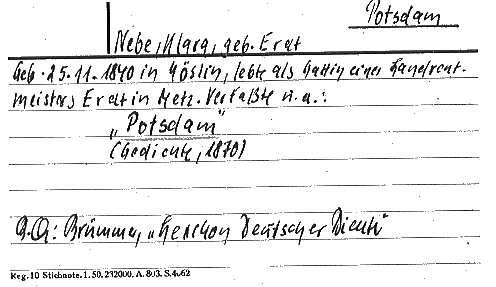 Potsdam
Nebe, Klara, geb. Erdt
Geb. 25.11.1840 in Cöslin, lebte als Gattin eines Landrent-
meisters Erdt in Metz. Verfaßte u.a.:
„Potsdam"
(Gedichte, 1870)
B.Q.: Brümmer, „Lexikon Deutscher Dicht"
Reg. 10 Stichnote. 1. 50. 232000. A. 803. S. 4062